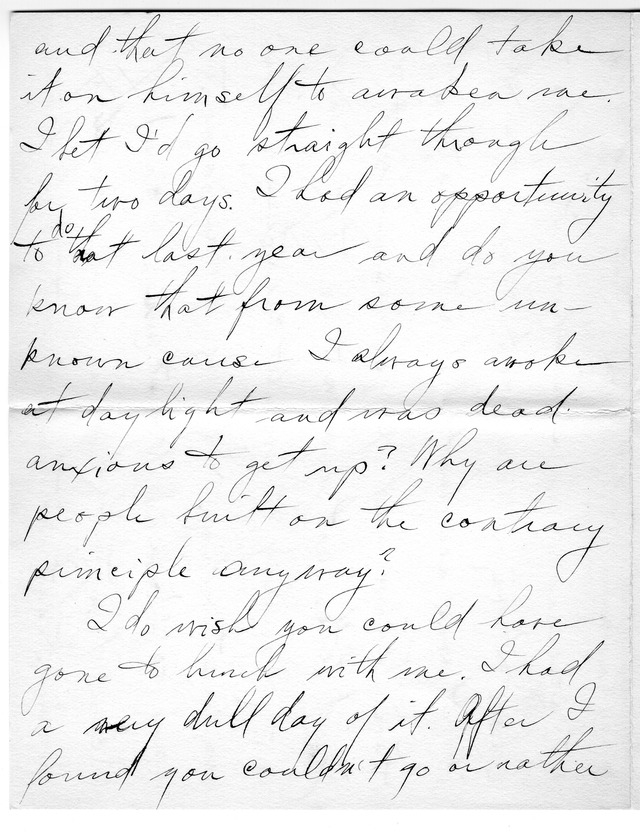 and that no one could take
it on himself to awaken me.
I bet I'd go straight through
for two days. I had an opportunity
to do that last year and do you
know that from some un-
known cause I always awoke
at daylight and was dead
anxious to get up? Why are
people built on the contrary
principle anyway?
I do wish you could have
gone to lunch with me. I had
a very dull day of it. After I
found you couldn't go or rather